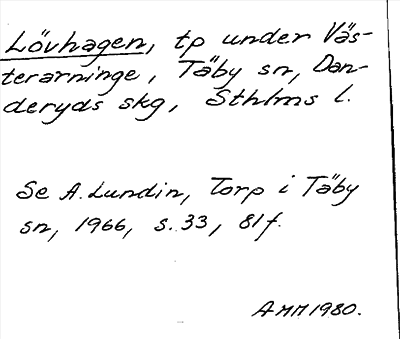 Lövhagen, tp under Väs-
terarninge, Täby sn, Dan-
deryds skg, Sthlms l.
Se A. Lundin, Torp i Täby
sn, 1966, s. 33, 81f.
AMM 1980.